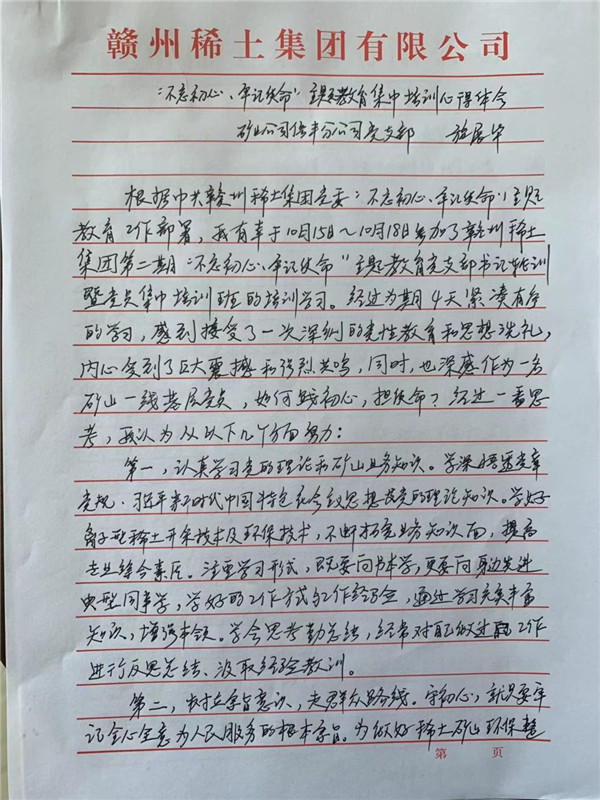 赣州稀土集团有限公司
“不忘初心、牢记使命”主题教育集中培训心得体会
矿山公司信丰分公司党支部 施展华
根据中共赣州稀土集团党委“不忘初心、牢记使命”主题
教育工作部署，我有幸于10月15日～10月18日参加了赣州稀土
集团第二期“不忘初心、牢记使命”主题教育党支部书记培训
暨党员集中培训班的培训学习。经过为期4天紧凑有序
的学习，感到接受了一次深刻的党性教育和思想洗礼，
内心受到了巨大震撼和强烈共鸣，同时，也深感作为一名
矿山一线基层党员，如何践初心，担使命？经过一番思
考，我认为从以下几个方面努力：
第一，认真学习党的理论和矿山业务知识。学深悟透党章
党规、习近平新时代中国特色社会主义思想及党的理论知识。学好
离子型稀土开采技术及环保技术，不断拓宽业务知识面，提高
专业综合素质。注重学习形式，既要向书本学，更要向身边先进
典型同事学，学好的工作方式与工作经验，通过学习充实丰富
知识，增强本领。学会思考勤总结，经常对自己做过的工作
进行反思总结、汲取经验教训。
第二，树立宗旨意识，走群众路线。守初心，就是要牢
记全心全意为人民服务的根本宗旨。为做好稀土矿山环保整
第 页